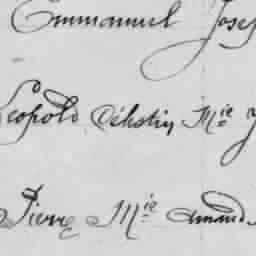 Emmanuel Josep
Leopold Célestin Mie J
Pierre Mie Amand